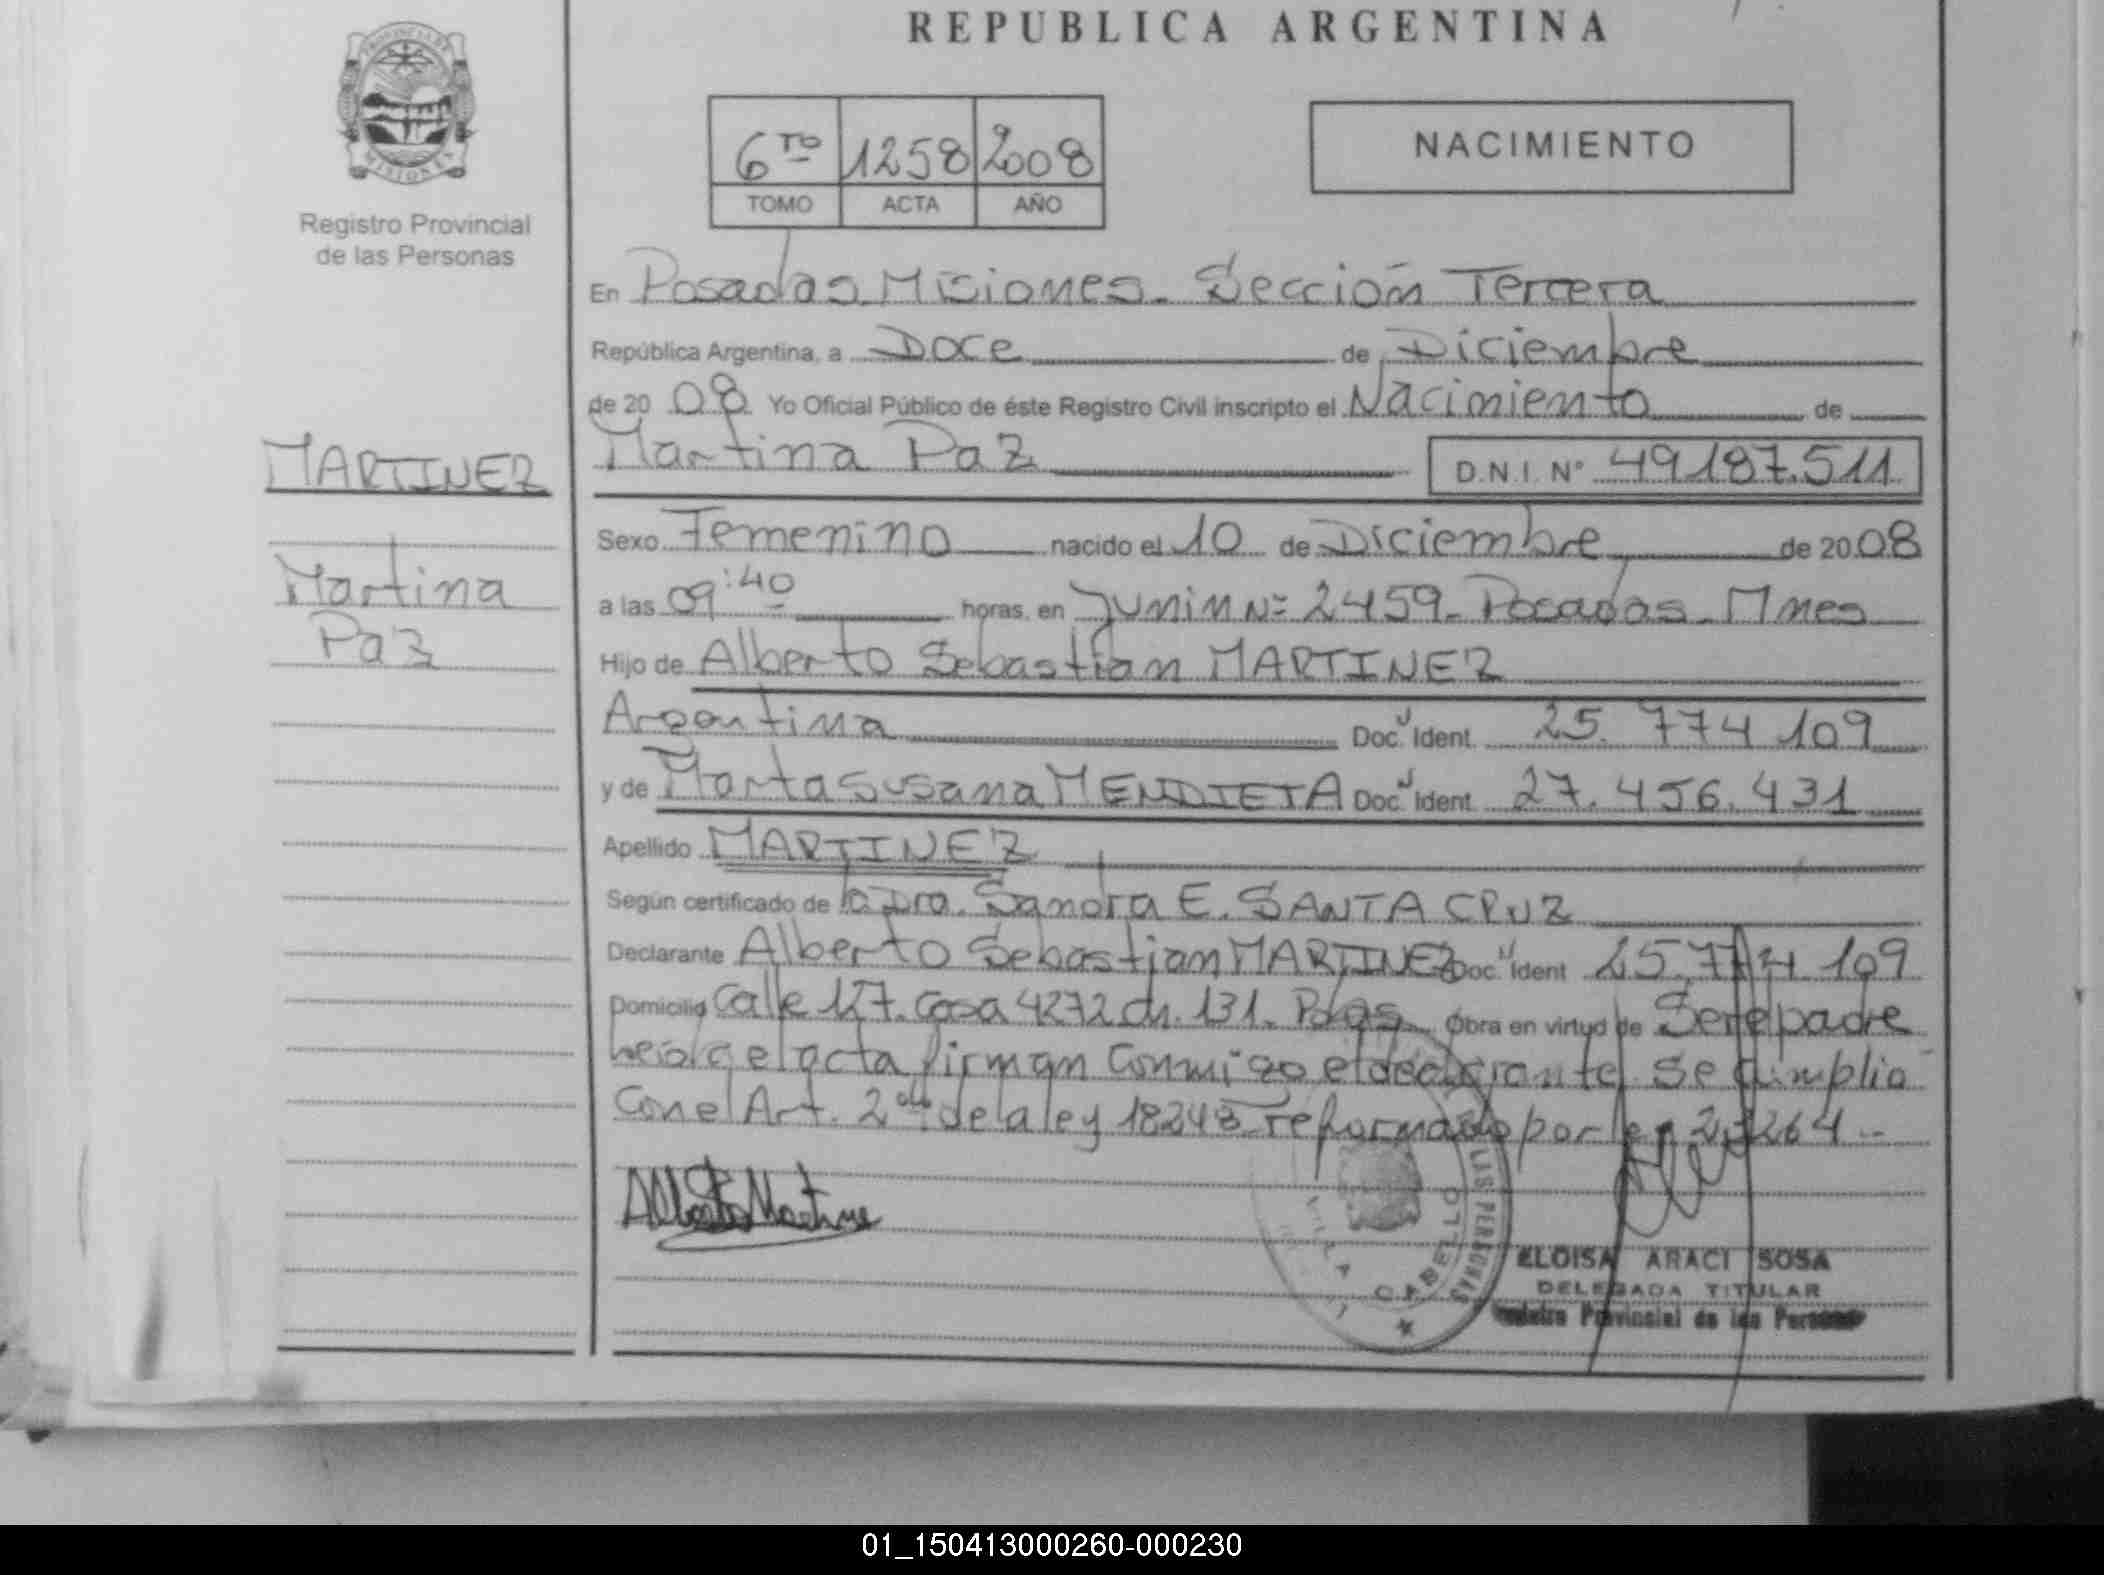 REPUBLICA ARGENTINA
6TO 1258 2008
TOMO ACTA AÑO
NACIMIENTO
PROVINCIA DE
MISIONES
Registro Provincial
de las Personas
MARTINEZ
Martina
Paz
En Posadas. Misiones. Sección Tercera
República Argentina, a Doce de Diciembre
de 20 08 Yo Oficial Público de éste Registro Civil inscripto el Nacimiento de
Martina Paz D.N.I. N° 49187.511
Sexo Femenino nacido el 10 de Diciembre de 2008
a las 09:40 horas, en Junin Nº 2459. Posadas. Mnes
Hijo de Alberto Sebastian MARTINEZ
Argentina Doc. Ident. 25.774 109
y de Marta Susana MENDIETA Doc. Ident. 27.456.431
Apellido MARTINEZ
Según certificado de la Dra. Sandra E. SANTA CRUZ
Declarante Alberto Sebastian MARTINEZ Doc. Ident 25.774 109
Domicilio Calle 127. Casa 4272 ch. 131. Pdas. Obra en virtud de Ser el padre
el acta firman Conmigo el declarante. Se
Con el Art. 2 de la ley 18248 reformado por
Alberto Martine
LAS PERSONAS
VILLA CABELLO
ELOISA ARACI SOSA
DELEGADA TITULAR
Provincial de las Personas
01_150413000260-000230